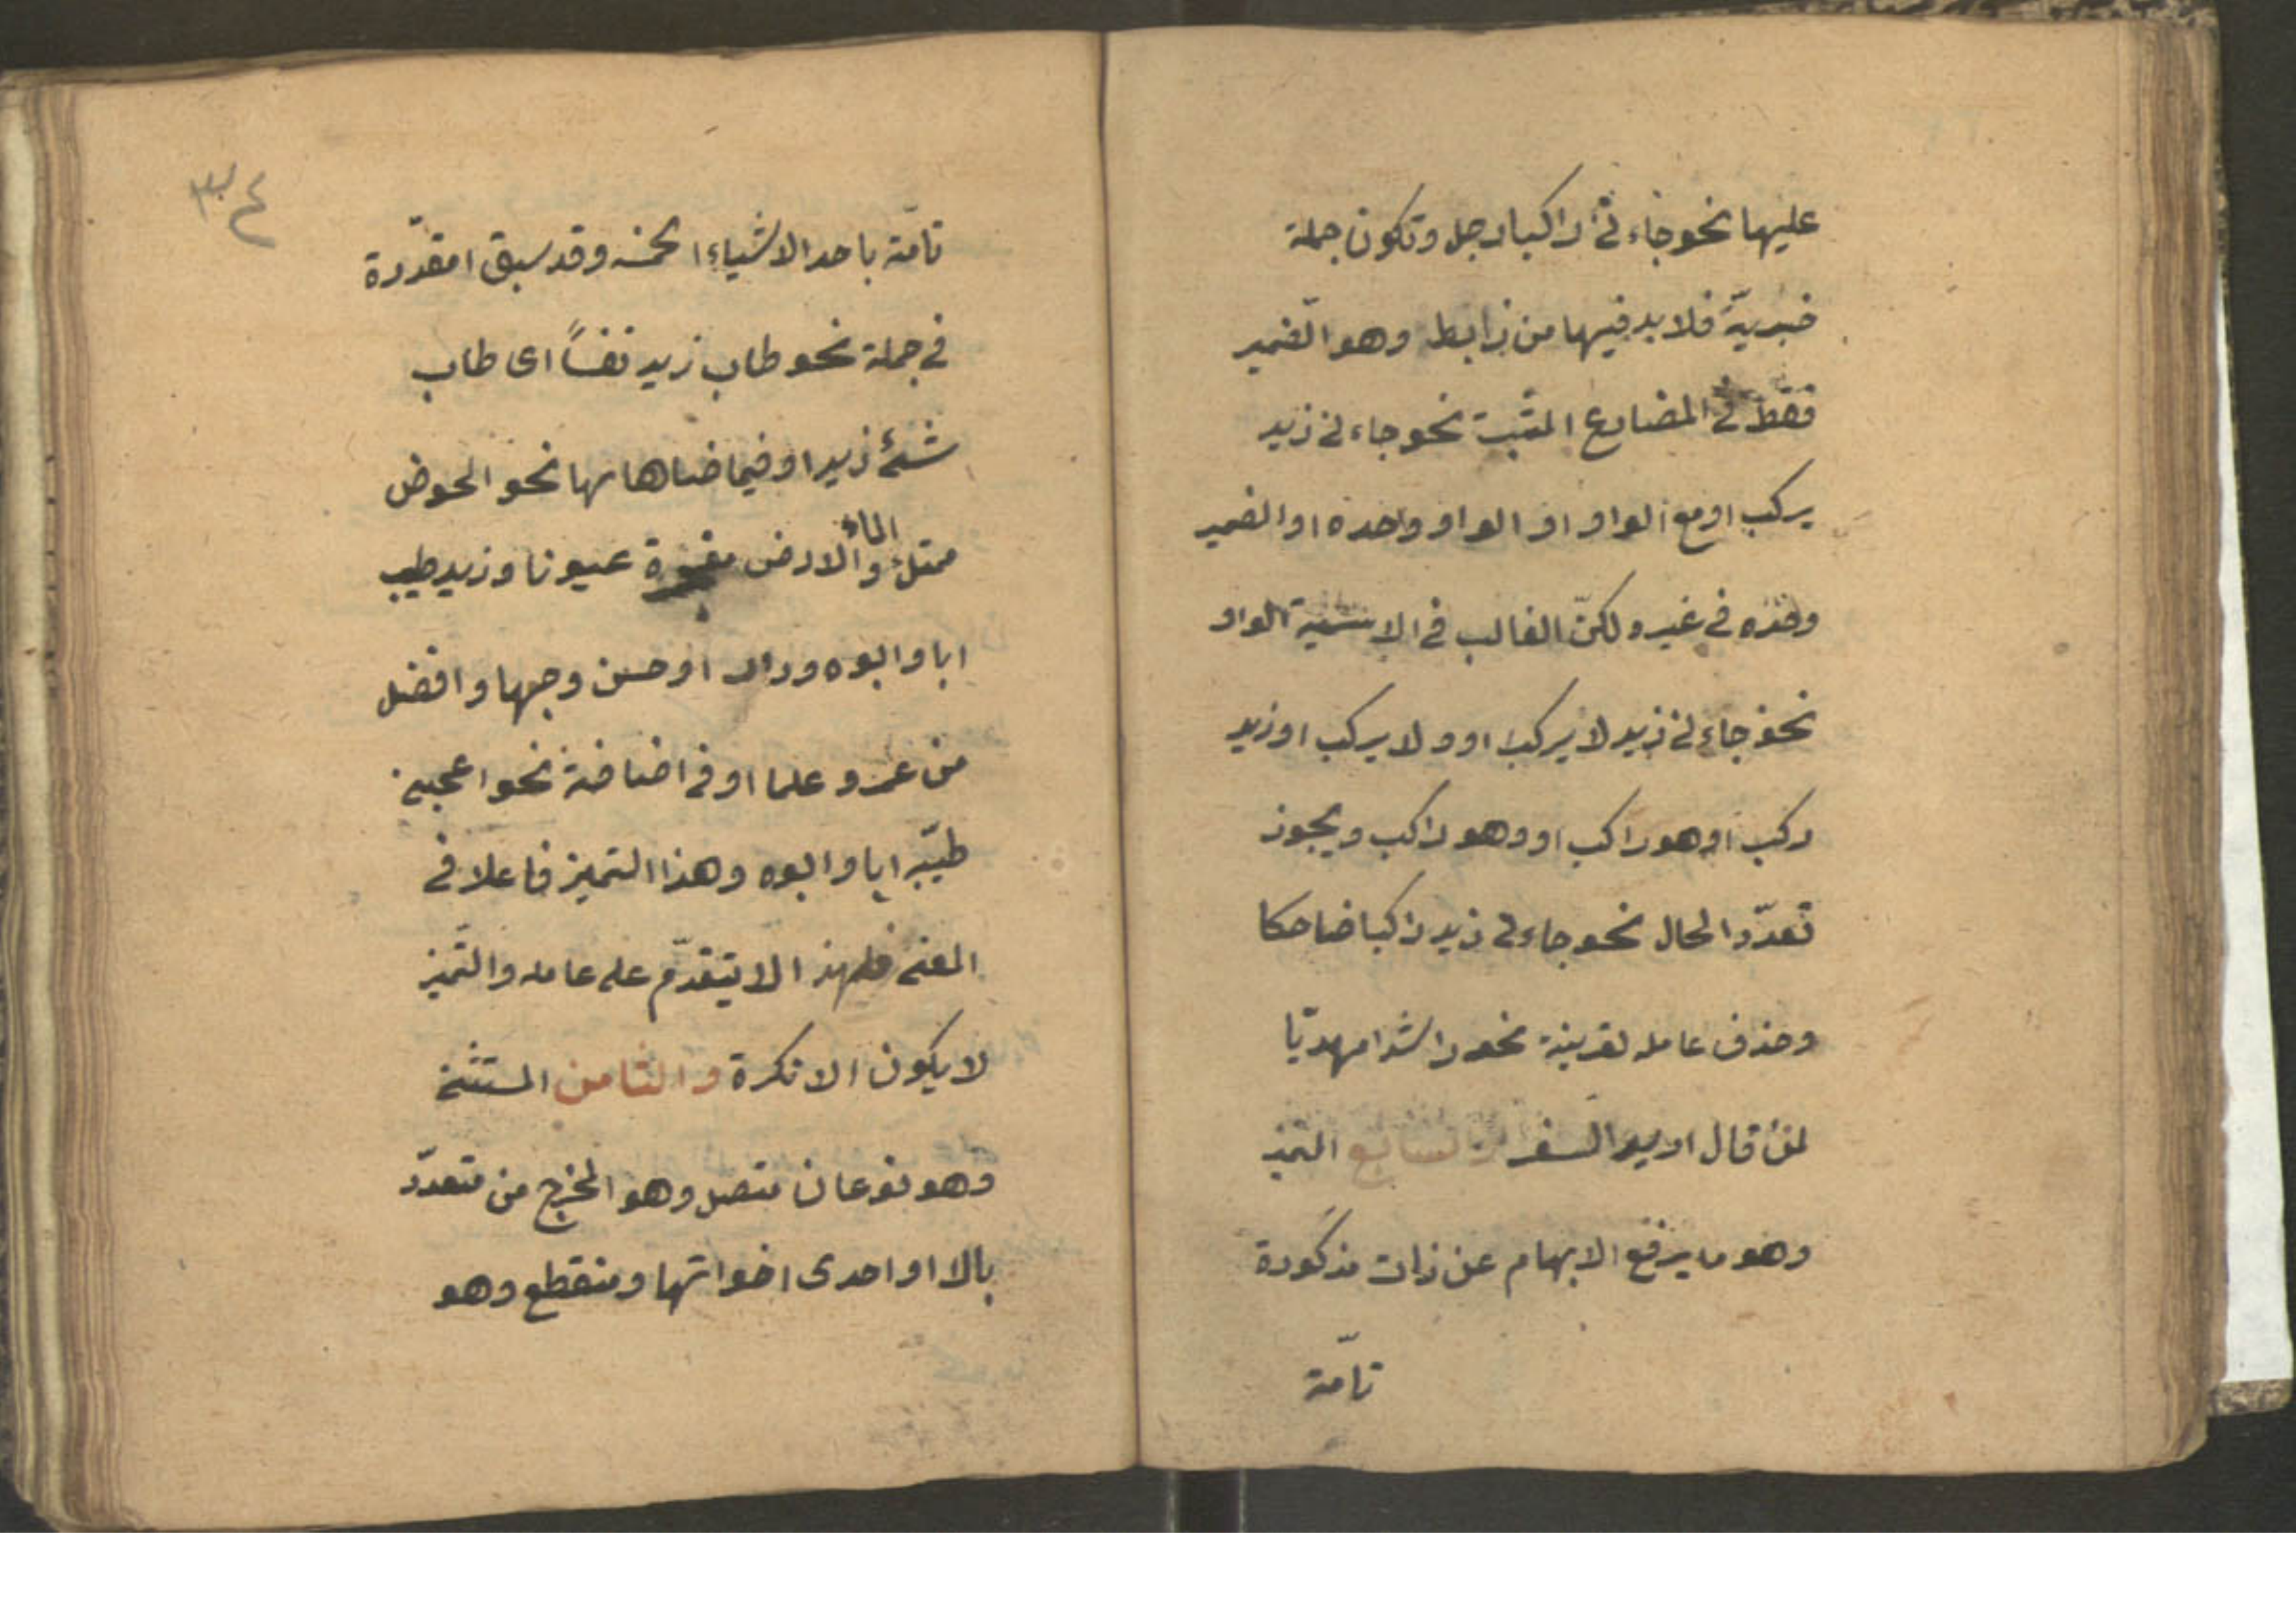 عليها نحو جاءنى راكبا رجل وتكون جملة
خبريّة فلا بد فيها من رابط وهو الضمير
فقط فى المضارع المثبت نحو جاءنى زيد
يركب او مع الواو او الواو وحده او الضمير
وحده فى غيره ولكنّ الغالب فى الاسمية الواو
نحو جاءنى زيد لا يركب او ولا يركب او زيد
ركب او هو راكب او وهو راكب ويجوز
تعدّد الحال نحو جاءنى زيد راكبا ضاحكا
وحذف عامله لقرينة نحو راشدا مهديّا
لمن قال اريد السفر والسابع التميز
وهو ما يرفع الابهام عن ذات مذكورة
تامّة
٣٤
تامّة باحد الاشياء الخمسه وقد سبق او مقدّرة
فى جملة نحو طاب زيد نفساً اى طاب
شئ زيد او فيما ضاهاها نحو الحوض
ممتلئ الماء والارض مفجرة عيونا وزيد طيب
ابا وابوه ودارا وحسن وجها وافضل
من عمرو علما او فى اضافة نحو اعجبنى
طيبه ابا وابوه وهذا التميز فاعلا فى
المعنى فلهذا لا يتقدّم على عامله والتّميز
لا يكون الا نكرة والثامن المستثنى
وهو نوعان متصل وهو المخرج من متعدّد
بالا او احدى اخواتها ومنقطع وهو